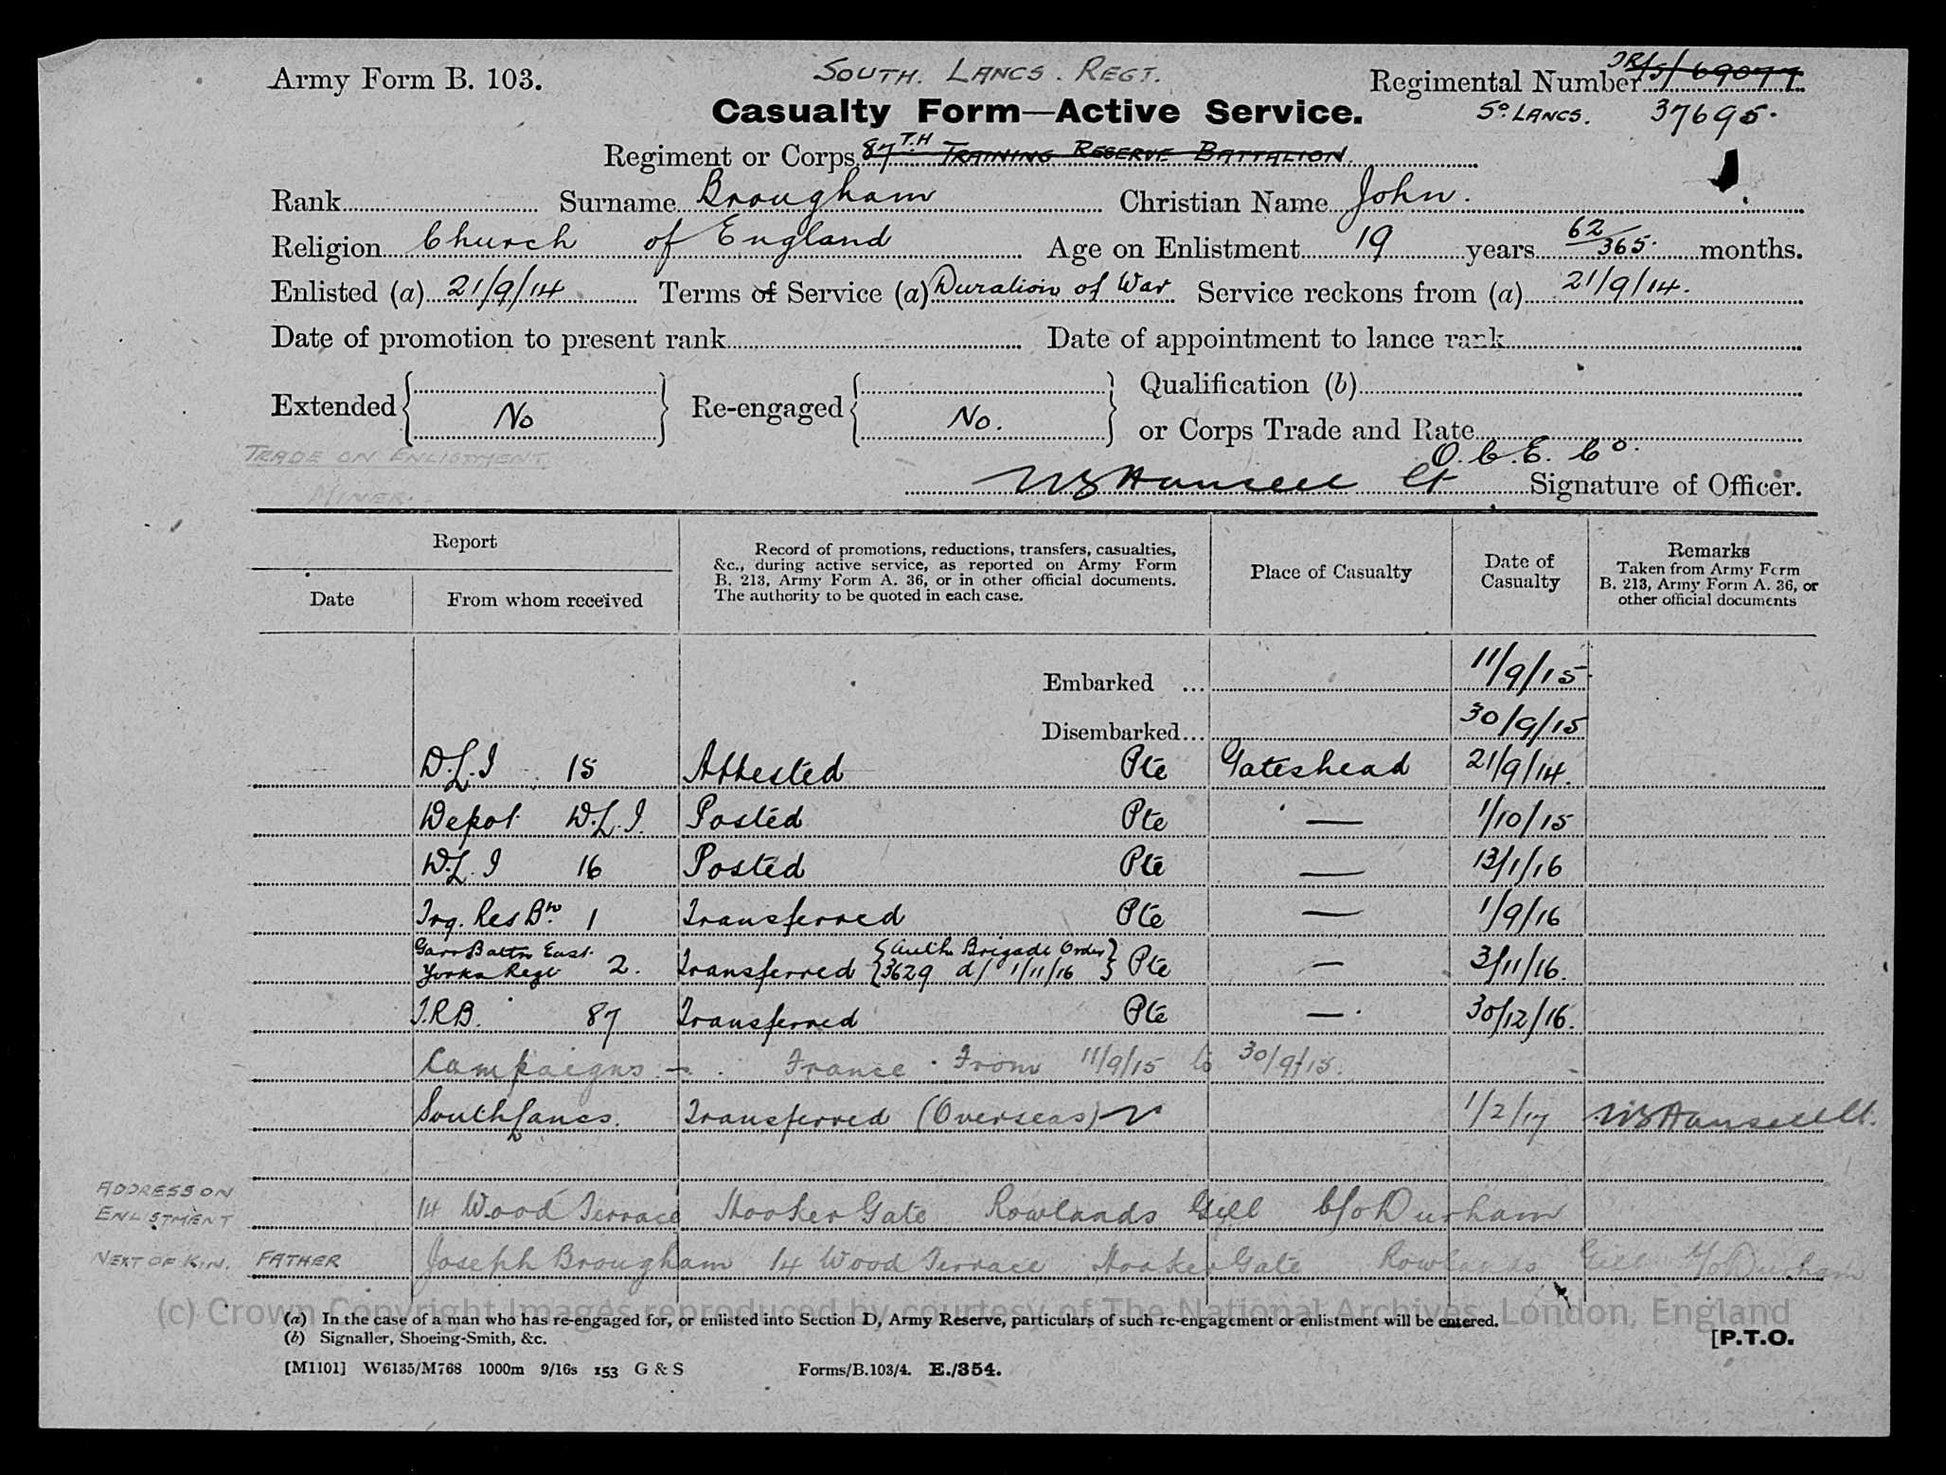 Army Form B. 103.
SOUTH. LANCS. REGT.
Regimental Number TR/5/69077
Casualty Form—Active Service.
So. LANCS. 37695.
Regiment or Corps 87TH TRAINING RESERVE BATTALION
Rank Surname Brougham Christian Name John.
Religion Church of England Age on Enlistment 19 years 62/365 months.
Enlisted (a) 21/9/14 Terms of Service (a) Duration of War Service reckons from (a) 21/9/14.
Date of promotion to present rank Date of appointment to lance rank
Extended { No } Re-engaged { No. } Qualification (b)
or Corps Trade and Rate
TRADE ON ENLISTMENT
MINER.
O.C.E. Co.
Lt Signature of Officer.
Report
Date
From whom received
Record of promotions, reductions, transfers, casualties, &c., during active service, as reported on Army Form B. 213, Army Form A. 36, or in other official documents. The authority to be quoted in each case.
Place of Casualty
Date of Casualty
Remarks
Taken from Army Form B. 213, Army Form A. 36, or other official documents
Embarked ... 11/9/15
Disembarked... 30/9/15
D.L.I 15 Attested Pte Gateshead 21/9/14.
Depot D.L.I. Posted Pte — 1/10/15
D.L.I 16 Posted Pte — 13/1/16
Trg. Res Bn 1 Transferred Pte — 1/9/16
Garr Battn East Yorks Regt 2. Transferred {Auth Brigade Order 3629 d/ 1/11/16} Pte — 3/11/16.
T.R.B. 87 Transferred Pte —. 30/12/16.
Campaigns — France. From 11/9/15 to 30/9/15.
South Lancs. Transferred (Overseas) 1/2/17
ADDRESS ON ENLISTMENT 14 Wood Terrace Hooker Gate Rowlands Gill C/o Durham
NEXT OF KIN. FATHER Joseph Brougham 14 Wood Terrace Hooker Gate Rowlands Gill C/o Durham
(c) Crown Copyright Images reproduced by courtesy of The National Archives, London, England
(a) In the case of a man who has re-engaged for, or enlisted into Section D, Army Reserve, particulars of such re-engagement or enlistment will be entered.
(b) Signaller, Shoeing-Smith, &c.
[P.T.O.
[M1101] W6135/M768 1000m 9/16s 153 G & S Forms/B.103/4. E./354.